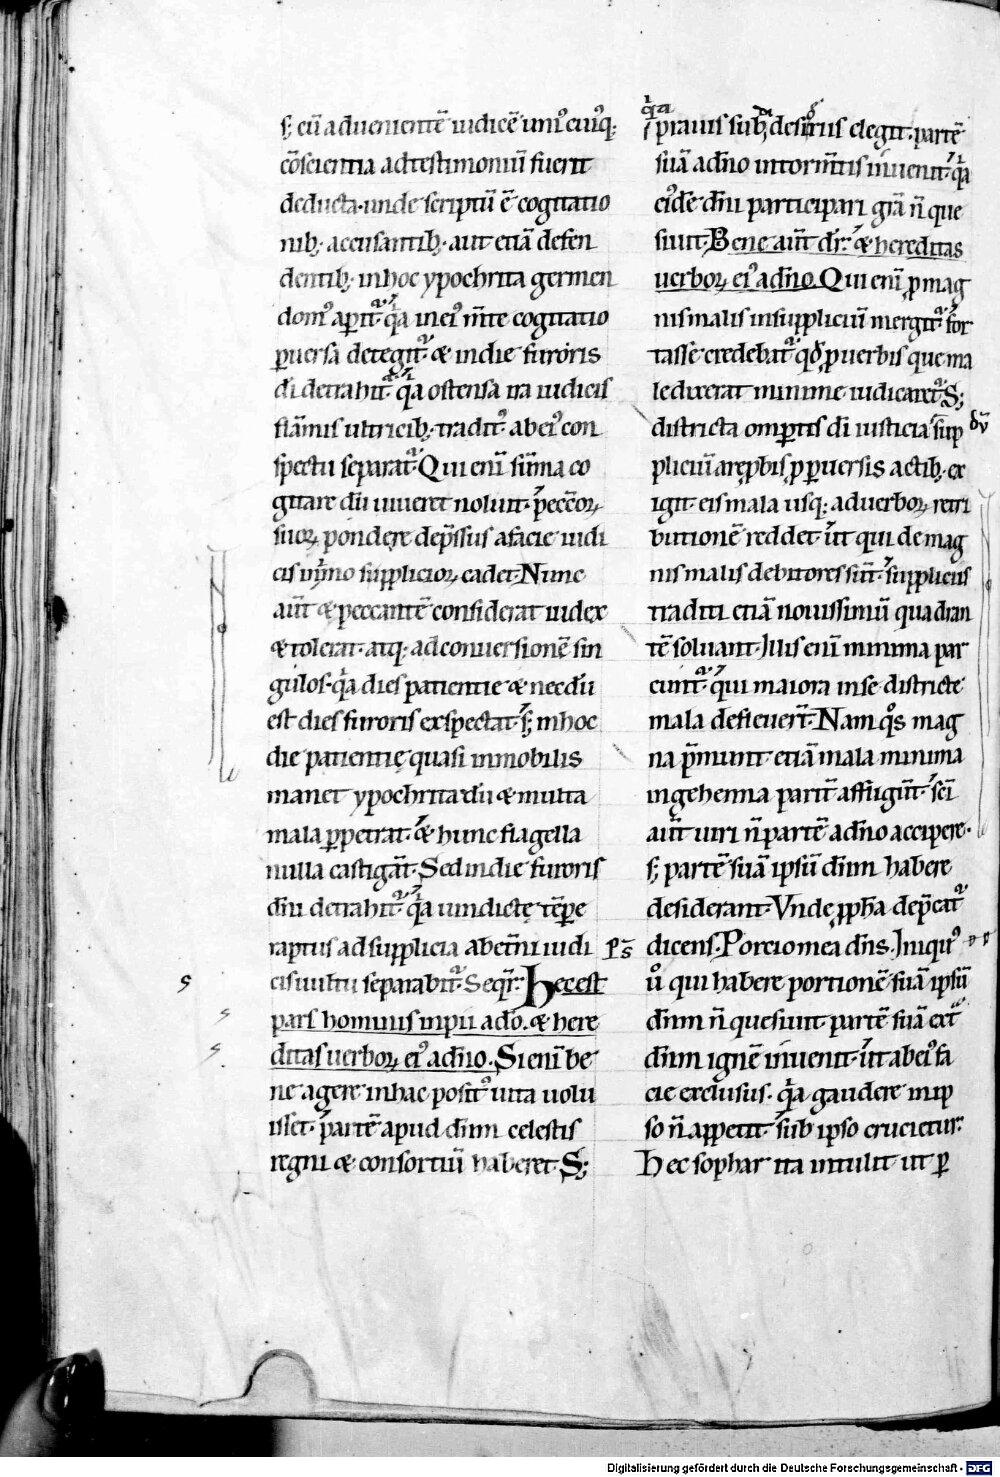 s; cū aduenientē iudicē uniꝰcuiꝰq;
cōscientia ad testimoniū fuerit
deducta. unde scriptū ē cogitatio
nib; accusantib; aut etiā defen
dentib;. in hoc ypochrita germen
domꝰ apit᷑. q̇a in eiꝰ m̄te cogitatio
ꝑuersa detegit᷑. & in die furoris
dī detrahit᷑. q̇a ostensa ira iudicis
flāmis ultricib; traditꝰ ab eiꝰ con
spectu separat᷑. Qui enī sūma co
gitare dū uiueret noluit. p̄ccōꝝ
suoꝝ pondere dep̄ssus a facie iudi
cis in imo supplicioꝝ cadet. Nunc
aūt & peccantē considerat iudex
& tolerat. atq; ad conuersionē sin
gulos. q̇a dies patientie & necdū
est dies furoris exspectat. s; in hoc
die patientię quasi inmobilis
manet ypochrita dū & multa
mala ꝑpetrat. & hunc flagella
nulla castigāt. Sed in die furoris
dn̄i detrahit᷑. q̇a uindictę tēpe
raptus ad supplicia ab et̄ni iudi
cis uultu separabit᷑. Seqr̄. Hec est
pars hominis impii a dō. & here
ditas uerboꝝ eiꝰ a dn̄o. Si enī be
ne agere in hac positꝰ uita uolu
isset. partē apud dn̄m celestis
regni & consortiū haberet. S;
q̇a
prauis sub desideriis elegit. partē
suā a dn̄o in torm̄tis inuenit. q̇a
eiꝰdē dn̄i participari grā n̄ que
siuit. Bene aūt dr̄. & hereditas
uerboꝝ eiꝰ a dn̄o. Qui enī ꝓ mag
nis malis in suppliciū mergit᷑. for
tasse credebat᷑ qd̄ ꝓ uerbis que ma
le dixerat minime iudicaret᷑. S;
districta omp̄tis dī iusticia dū sup
pliciū a rep̄bis ꝓ ꝑuersis actib; ex
igit. eis mala usq; ad uerboꝝ retri
butionē reddet. ut qui de mag
nis malis debitores sūt. suppliciis
traditi etiā nouissimū quadran
tē soluant. Illis enī minima par
cunt᷑. qui maiora in se districte
mala defleuerīt. Nam qͦs mag
na p̄munt. etiā mala minima
in gehenna parit᷑ affligūt. Sc̄i
aūt uiri n̄ partē a dn̄o accipere.
s; partē suā ipsū dn̄m habere
desiderant. Vnde ꝓpħa dep̄cat᷑
Ps̄
dicens. Porcio mea dn̄s. Iniquꝰ
u̇ qui habere portionē suā ipsū
dn̄m n̄ quesiuit. partē suā ext᷑
dn̄m ignē inuenit. ut ab eiꝰ fa
cie exclusus. q̇a gaudere in ip
so n̄ appetit. sub ipso crucietur.
Hec sophar ita intulit ut ꝑ
Digitalisierung gefördert durch die Deutsche Forschungsgemeinschaft - DFG